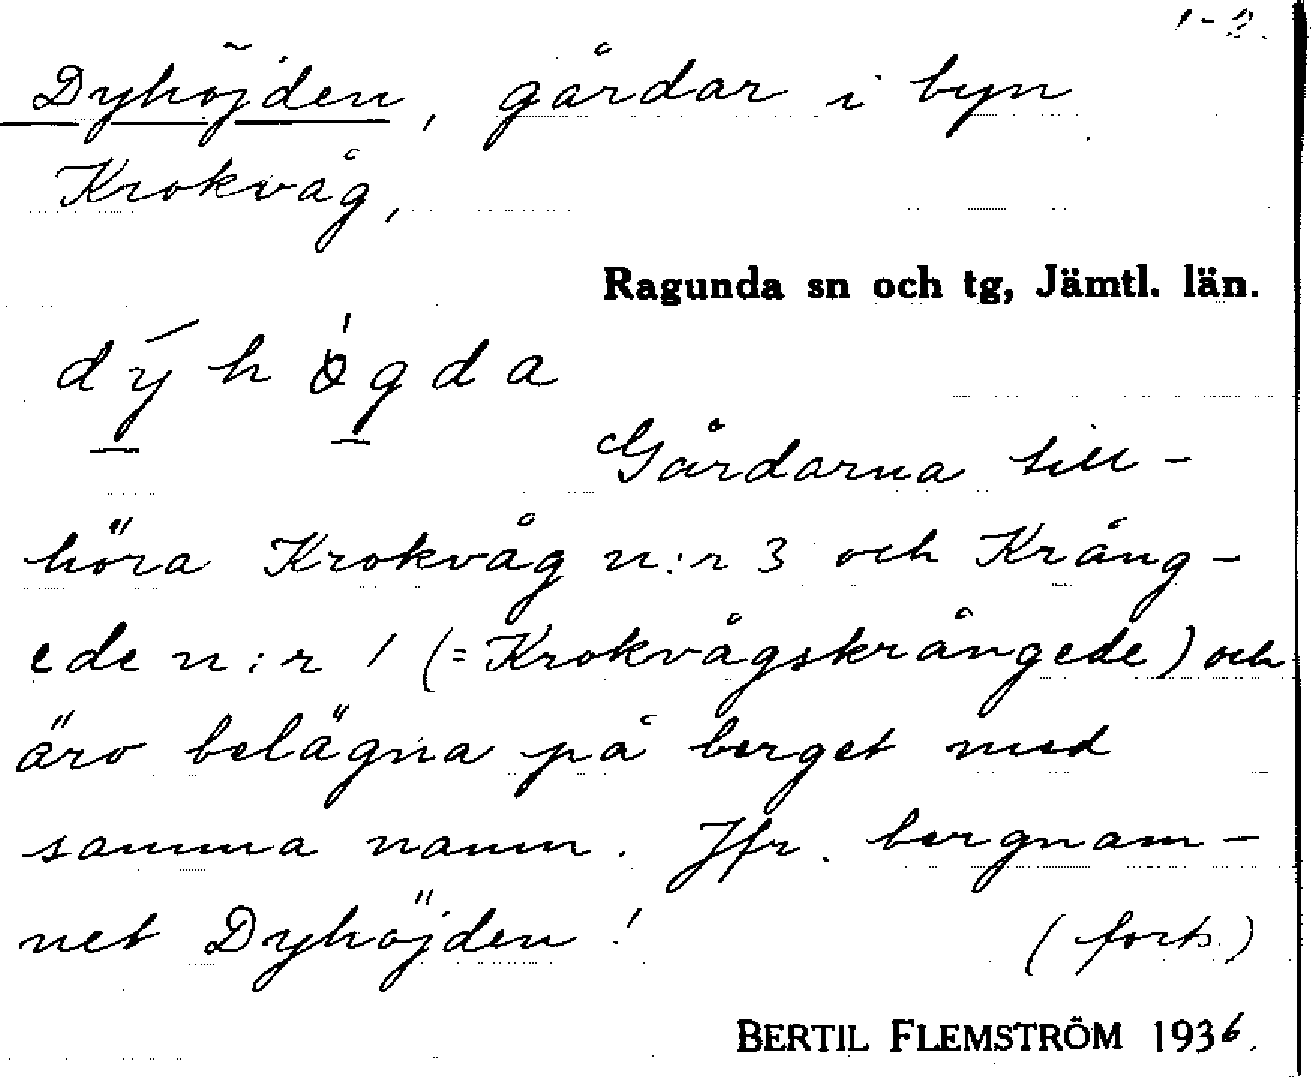 1-2.
Dyhöjden, gårdar i byn
Krokvåg,
Ragunda sn och tg, Jämtl. län.
dýhògda
Gårdarna till-
höra Krokvåg n:r 3 och Krång-
ede n:r 1 (=Krokvågskrångede) och
äro belägna på berget med
samma namn. Jfr. bergnam-
net Dyhöjden!
(forts.)
BERTIL FLEMSTRÖM 1936.